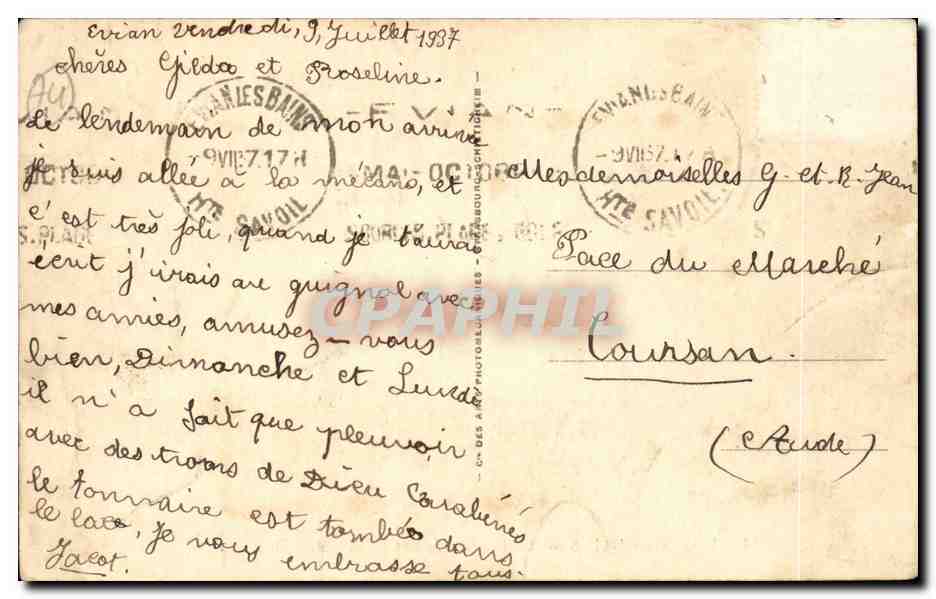 Evian vendredi, 9, Juillet 1937
chères Gilda et Roseline.
Le lendemain de mon arrivé
je suis allée à la mécano, et
c'est très joli, quand je t'aurai
écrit j'irais au guignol avec
mes amies, amusez-vous
bien, Dimanche et Lundi
il n'a fait que pleuvoir
avec des trons de Dieu Carabénés
le tonnaire est tombée dans
le lac, Je vous embrasse tous.
Jacot.
(AU)
EVIAN LES BAINS
-9 VII 37.17H
HTE SAVOIE
EVIAN
MAI-OCTOBRE
SOURCES, PLAGE, GOLF
OCTOB
S, PLAGE
EVIAN LES BAINS
-9 VII 37.17H
HTE SAVOIE
S
Mesdemoiselles G-et-R-Jean
Place du Marché
Coursan.
(Aude)
Cie DES ARTS PHOTOMECANIQUES - STRASBOURG-SCHILTIGHEIM
CPAPHIL